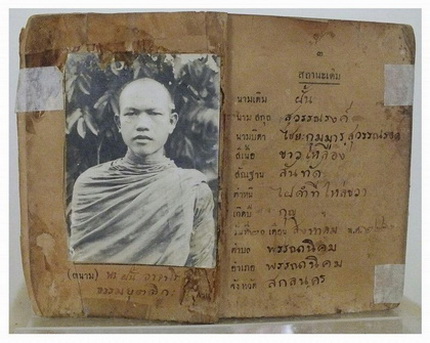 ๒
สถานะเดิม
นามเดิม ฝั้น
นามสกุล สุวรรณรงค์
นามบิดา
สีเนื้อ ขาวเหลือง
สัณฐาน สันทัด
ตำหนิ ไฝดำที่ไหล่ขวา
เกิดปี กุญ
เดือน สิงหาคม
ตำบล พรรณานิคม
อำเภอ พรรณานิคม
จังหวัด สกลนคร
ฝั้น อาจาโร